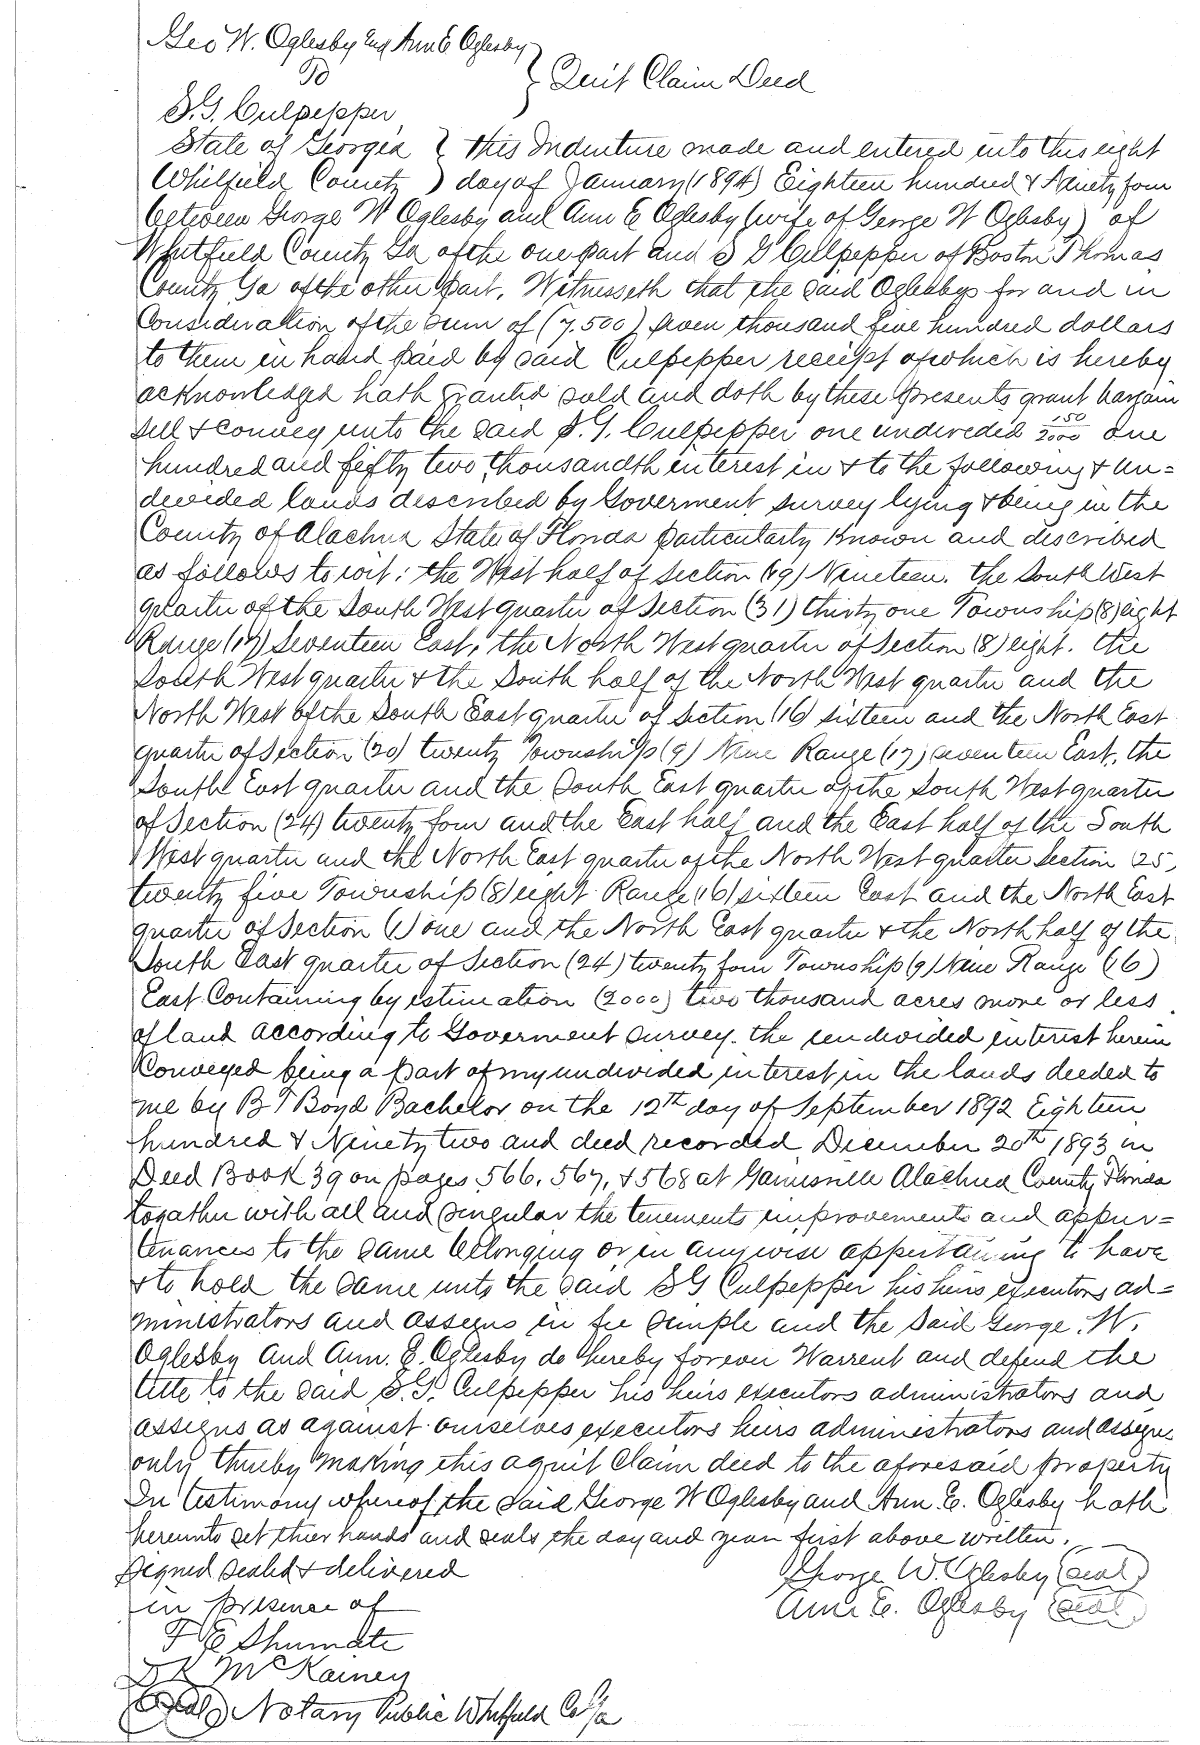 Geo W. Oglesby and Ann E Oglesby
To } Quit Claim Deed
S. G. Culpepper
State of Georgia } this Indenture made and entered into this eight
Whitfield County ) day of January (1894) Eighteen hundred & Ninety four
between George W Oglesby and Ann E Oglesby (wife of George W Oglesby) of
Whitfield County Ga of the one part and S G Culpepper of Boston Thomas
County Ga of the other part. Witnesseth that the said Oglesbys for and in
Consideration of the sum of (7,500) seven thousand five hundred dollars
to them in hand paid by said Culpepper receipt of which is hereby
acknowledged hath granted sold and doth by these presents grant bargain
sell & convey unto the said S. G. Culpepper one undivided 150/2000 one
hundred and fifty two thousandth interest in & to the following & un=
devided lands described by Goverment survey lying & being in the
County of Alachua State of Florida particularly Known and described
as follows to wit: the West half of Section (19) Nineteen. the South West
quarter of the South West quarter of Section (31) thirty one Township (8) eight
Range (17) Seventeen East, the North West quarter of Section (8) eight. the
South West quarter & the South half of the North West quarter and the
North West of the South East quarter of Section (16) sixteen and the North East
quarter of Section (20) twenty Township (9) Nine Range (17) seventeen East, the
South East quarter and the South East quarter of the South West quarter
of Section (24) twenty four and the East half and the East half of the South
West quarter and the North East quarter of the North West quarter Section (25)
twenty five Township (8) eight Range (16) sixteen East and the North East
quarter of Section (1) one and the North East quarter & the North half of the
South East quarter of Section (24) twenty four Township (9) Nine Range (16)
East Containing by estimation (2000) two thousand acres more or less
of land according to Goverment survey. the undivided interest herein
Conveyed being a part of my undivided interest in the lands deeded to
me by B T Boyd Bachelor on the 12th day of September 1892 Eighteen
hundred & Ninety two and deed recorded December 20th 1893 in
Deed Book 39 on pages 566, 567, & 568 at Gainesville Alachua County Florida
togather with all and singular the tenements improvements and appur=
tenances to the same belonging or in anywise appertaining to have
& to hold the same unto the said S G Culpepper his heirs executors ad=
ministrators and assigns in fee simple and the Said George. W.
Oglesby and Ann. E. Oglesby do hereby forever Warrent and defend the
title to the said S. G. Culpepper his heirs executors administrators and
assigns as against ourselves executors heirs administrators and assigns
only thereby making this a quit Claim deed to the aforesaid property
In testimony whereof the said George W Oglesby and Ann. E. Oglesby hath
hereunto set thier hands and seals the day and year first above written.
Signed sealed & delivered George W. Oglesby (seal)
in presence of Ann E. Oglesby (seal)
T E Shumate
D K McKamey
(Seal) Notary Public Whitfield Co Ga